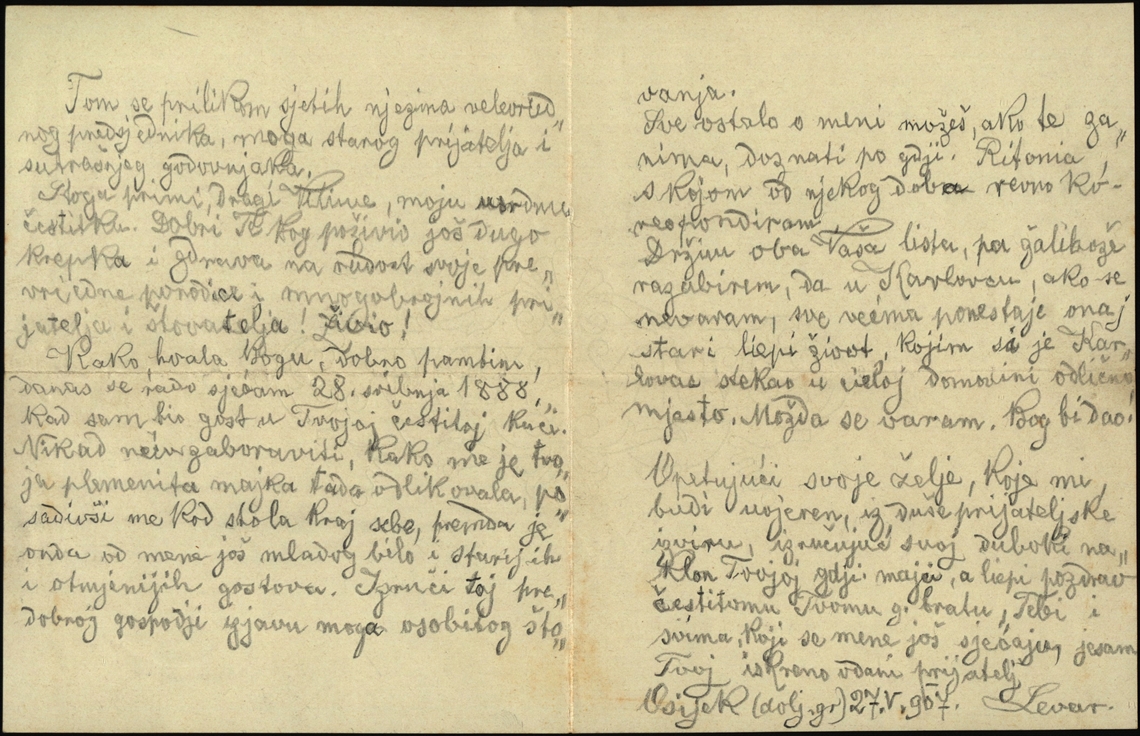 Tom se prilikom sjetih njezina velevried„
nog predsjednika, moga starog prijatelja i
sutrašnjeg godovnjaka.
Stoga primi, dragi Vilime, moju usrdnu
čestitku. Dobri Te Bog poživio još dugo
krepka i zdrava na radost svoje pre„
vriedne porodice i mnogobrojnih pri„
jatelja i štovatelja! Živio!
Kako, hvala Bogu, dobro pamtim,
danas se rado sjećam 28. svibnja 1888.,
kad sam bio gost u Tvojoj čestitoj kući.
Nikad neću zaboraviti, kako me je tvo„
ja plemenita majka tada odlikovala, po„
sadivši me kod stola kraj sebe, premda je
onda od mene još mladog bilo i starijih
i otmjenijih gostova. Izruči toj pre„
dobroj gospodji izjavu moga osobitog što„
vanja.
Sve ostalo o meni možeš, ako te za„
nima, doznati po gdji. Ritonia,
s kojom od njekog doba revno ko-
respondiram.
Držim oba Vaša lista, pa žalibože
razabirem, da u Karlovcu, ako se
nevaram, sve većma ponestaje onaj
stari liepi život, kojim si je Kar„
lovac stekao u cieloj domovini odlično
mjesto. Možda se varam. Bog bi dao!
Opetujući svoje želje, koje mi,
budi uvjeren, iz duše prijateljske
izviru, izručujuć svoj duboki na„
klon Tvojoj gdji. majci, a liepi pozdrav
čestitomu Tvomu g. bratu, Tebi i
svima, koji se mene još sjećaju, jesam
Tvoj iskreno odani prijatelj
Osijek (dolj. gr.) 27.V.907. Levar.